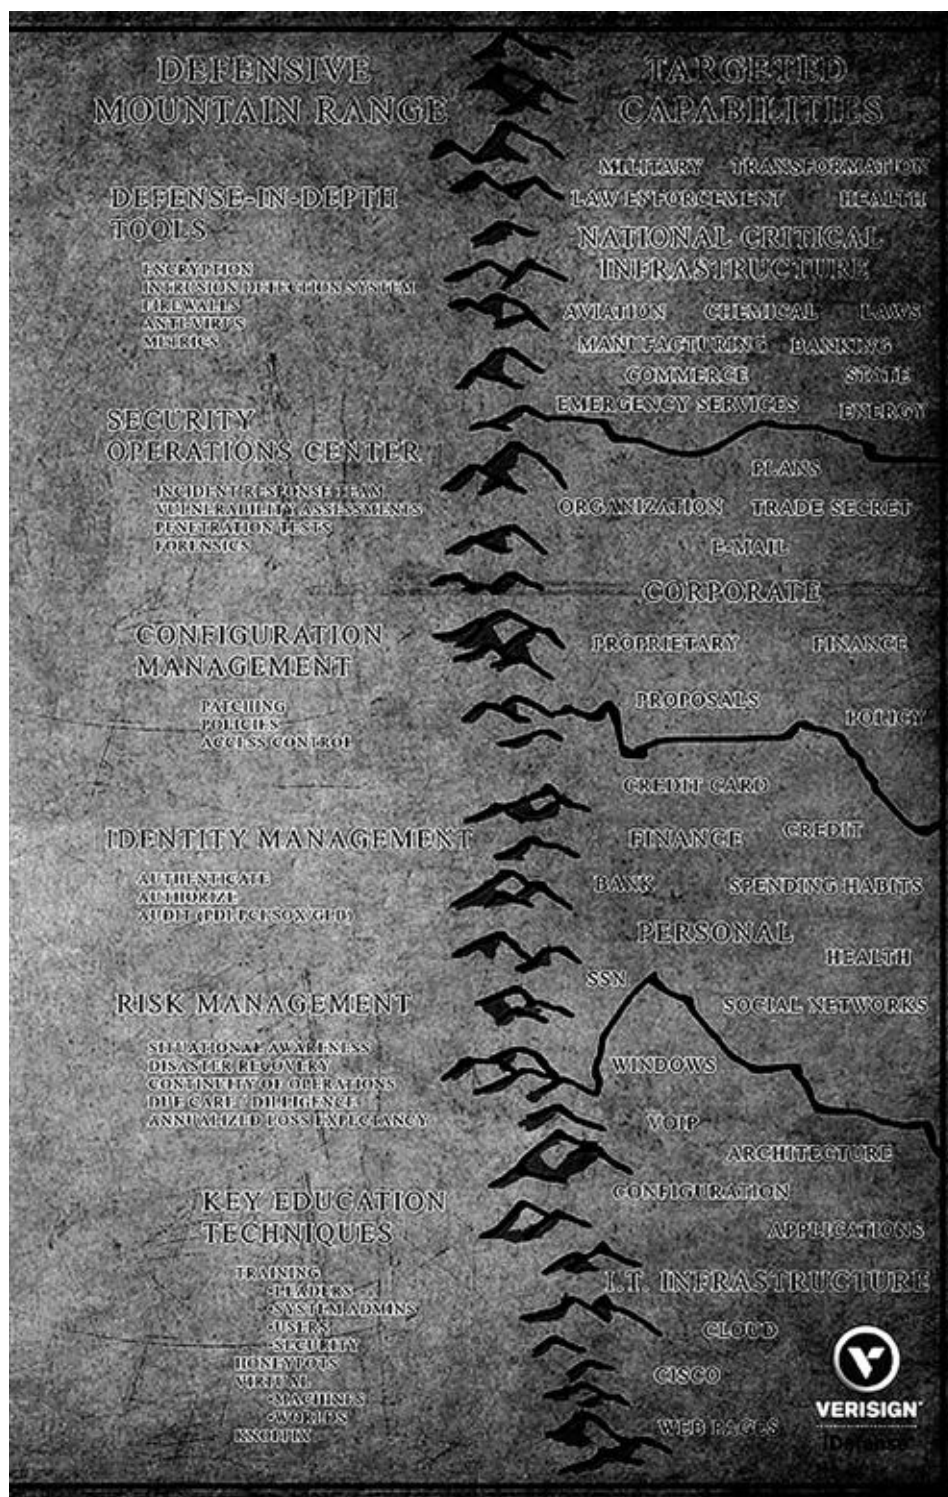 DEFENSIVE
MOUNTAIN RANGE
DEFENSE-IN-DEPTH
TOOLS
ENCRYPTION
INTRUSION DETECTION SYSTEM
FIREWALLS
ANTI-VIRUS
METRICS
SECURITY
OPERATIONS CENTER
INCIDENT RESPONSE TEAM
VULNERABILITY ASSESSMENTS
PENETRATION TESTS
FORENSICS
CONFIGURATION
MANAGEMENT
PATCHING
POLICIES
ACCESS CONTROL
IDENTITY MANAGEMENT
AUTHENTICATE
AUTHORIZE
AUDIT
RISK MANAGEMENT
SITUATIONAL AWARENESS
DISASTER RECOVERY
CONTINUITY OF OPERATIONS
DUE CARE / DILIGENCE
ANNUALIZED LOSS EXPECTANCY
KEY EDUCATION
TECHNIQUES
TRAINING
•LEADERS
•SYSTEM ADMINS
•USERS
•SECURITY
HONEYPOTS
VIRTUAL
•MACHINES
•WORLDS
KNOPPIX
TARGETED
CAPABILITIES
MILITARY TRANSFORMATION
LAW ENFORCEMENT HEALTH
NATIONAL CRITICAL
INFRASTRUCTURE
AVIATION CHEMICAL LAWS
MANUFACTURING BANKING
COMMERCE STATE
EMERGENCY SERVICES ENERGY
PLANS
ORGANIZATION TRADE SECRET
E-MAIL
CORPORATE
PROPRIETARY FINANCE
PROPOSALS
POLICY
CREDIT CARD
FINANCE CREDIT
BANK SPENDING HABITS
PERSONAL
HEALTH
SSN
SOCIAL NETWORKS
WINDOWS
VOIP
ARCHITECTURE
CONFIGURATION
APPLICATIONS
I.T. INFRASTRUCTURE
CLOUD
CISCO
WEB PAGES
VERISIGN
iDefense